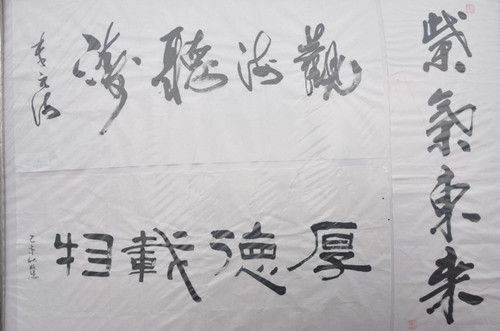 紫氣東来
觀海聽濤
厚德載物